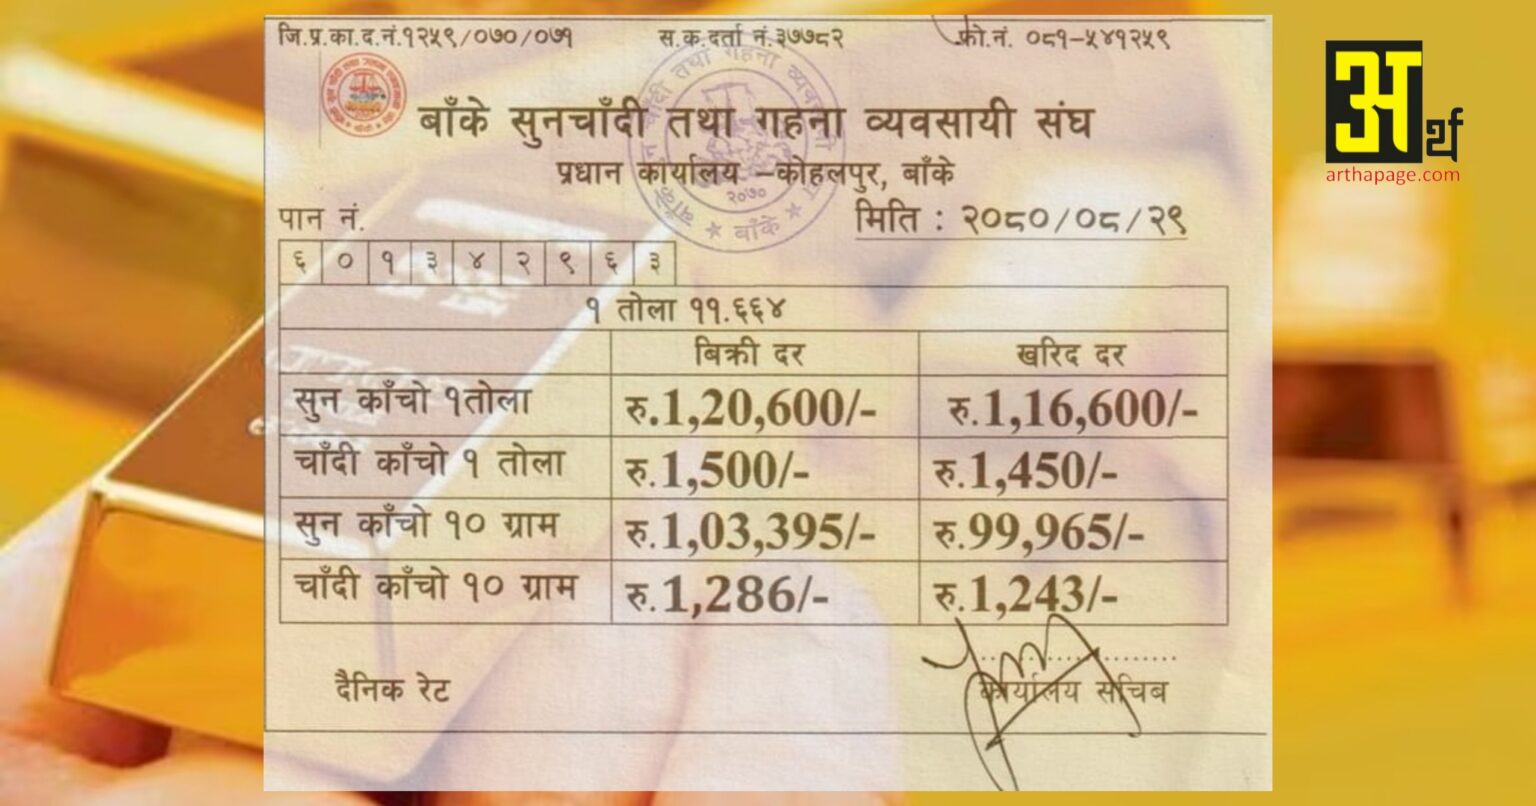 जि.प्र.का.द.नं.१२५९/०७०/०७१ स.क.दर्ता नं.३७७८२ फो.नं. ०८१-५४१२५९
बाँके सुनचाँदी तथा गहना व्यवसायी संघ
प्रधान कार्यालय –कोहलपुर, बाँके
पान नं. मिति : २०८०/०८/२९
६ ० १ ३ ४ २ ९ ६ ३
१ तोला ११.६६४
बिक्री दर खरिद दर
सुन काँचो १तोला रु.1,20,600/- रु.1,16,600/-
चाँदी काँचो १ तोला रु.1,500/- रु.1,450/-
सुन काँचो १० ग्राम रु.1,03,395/- रु.99,965/-
चाँदी काँचो १० ग्राम रु.1,286/- रु.1,243/-
दैनिक रेट कार्यालय सचिब
२०७०
बाँके
अर्थ
arthapage.com